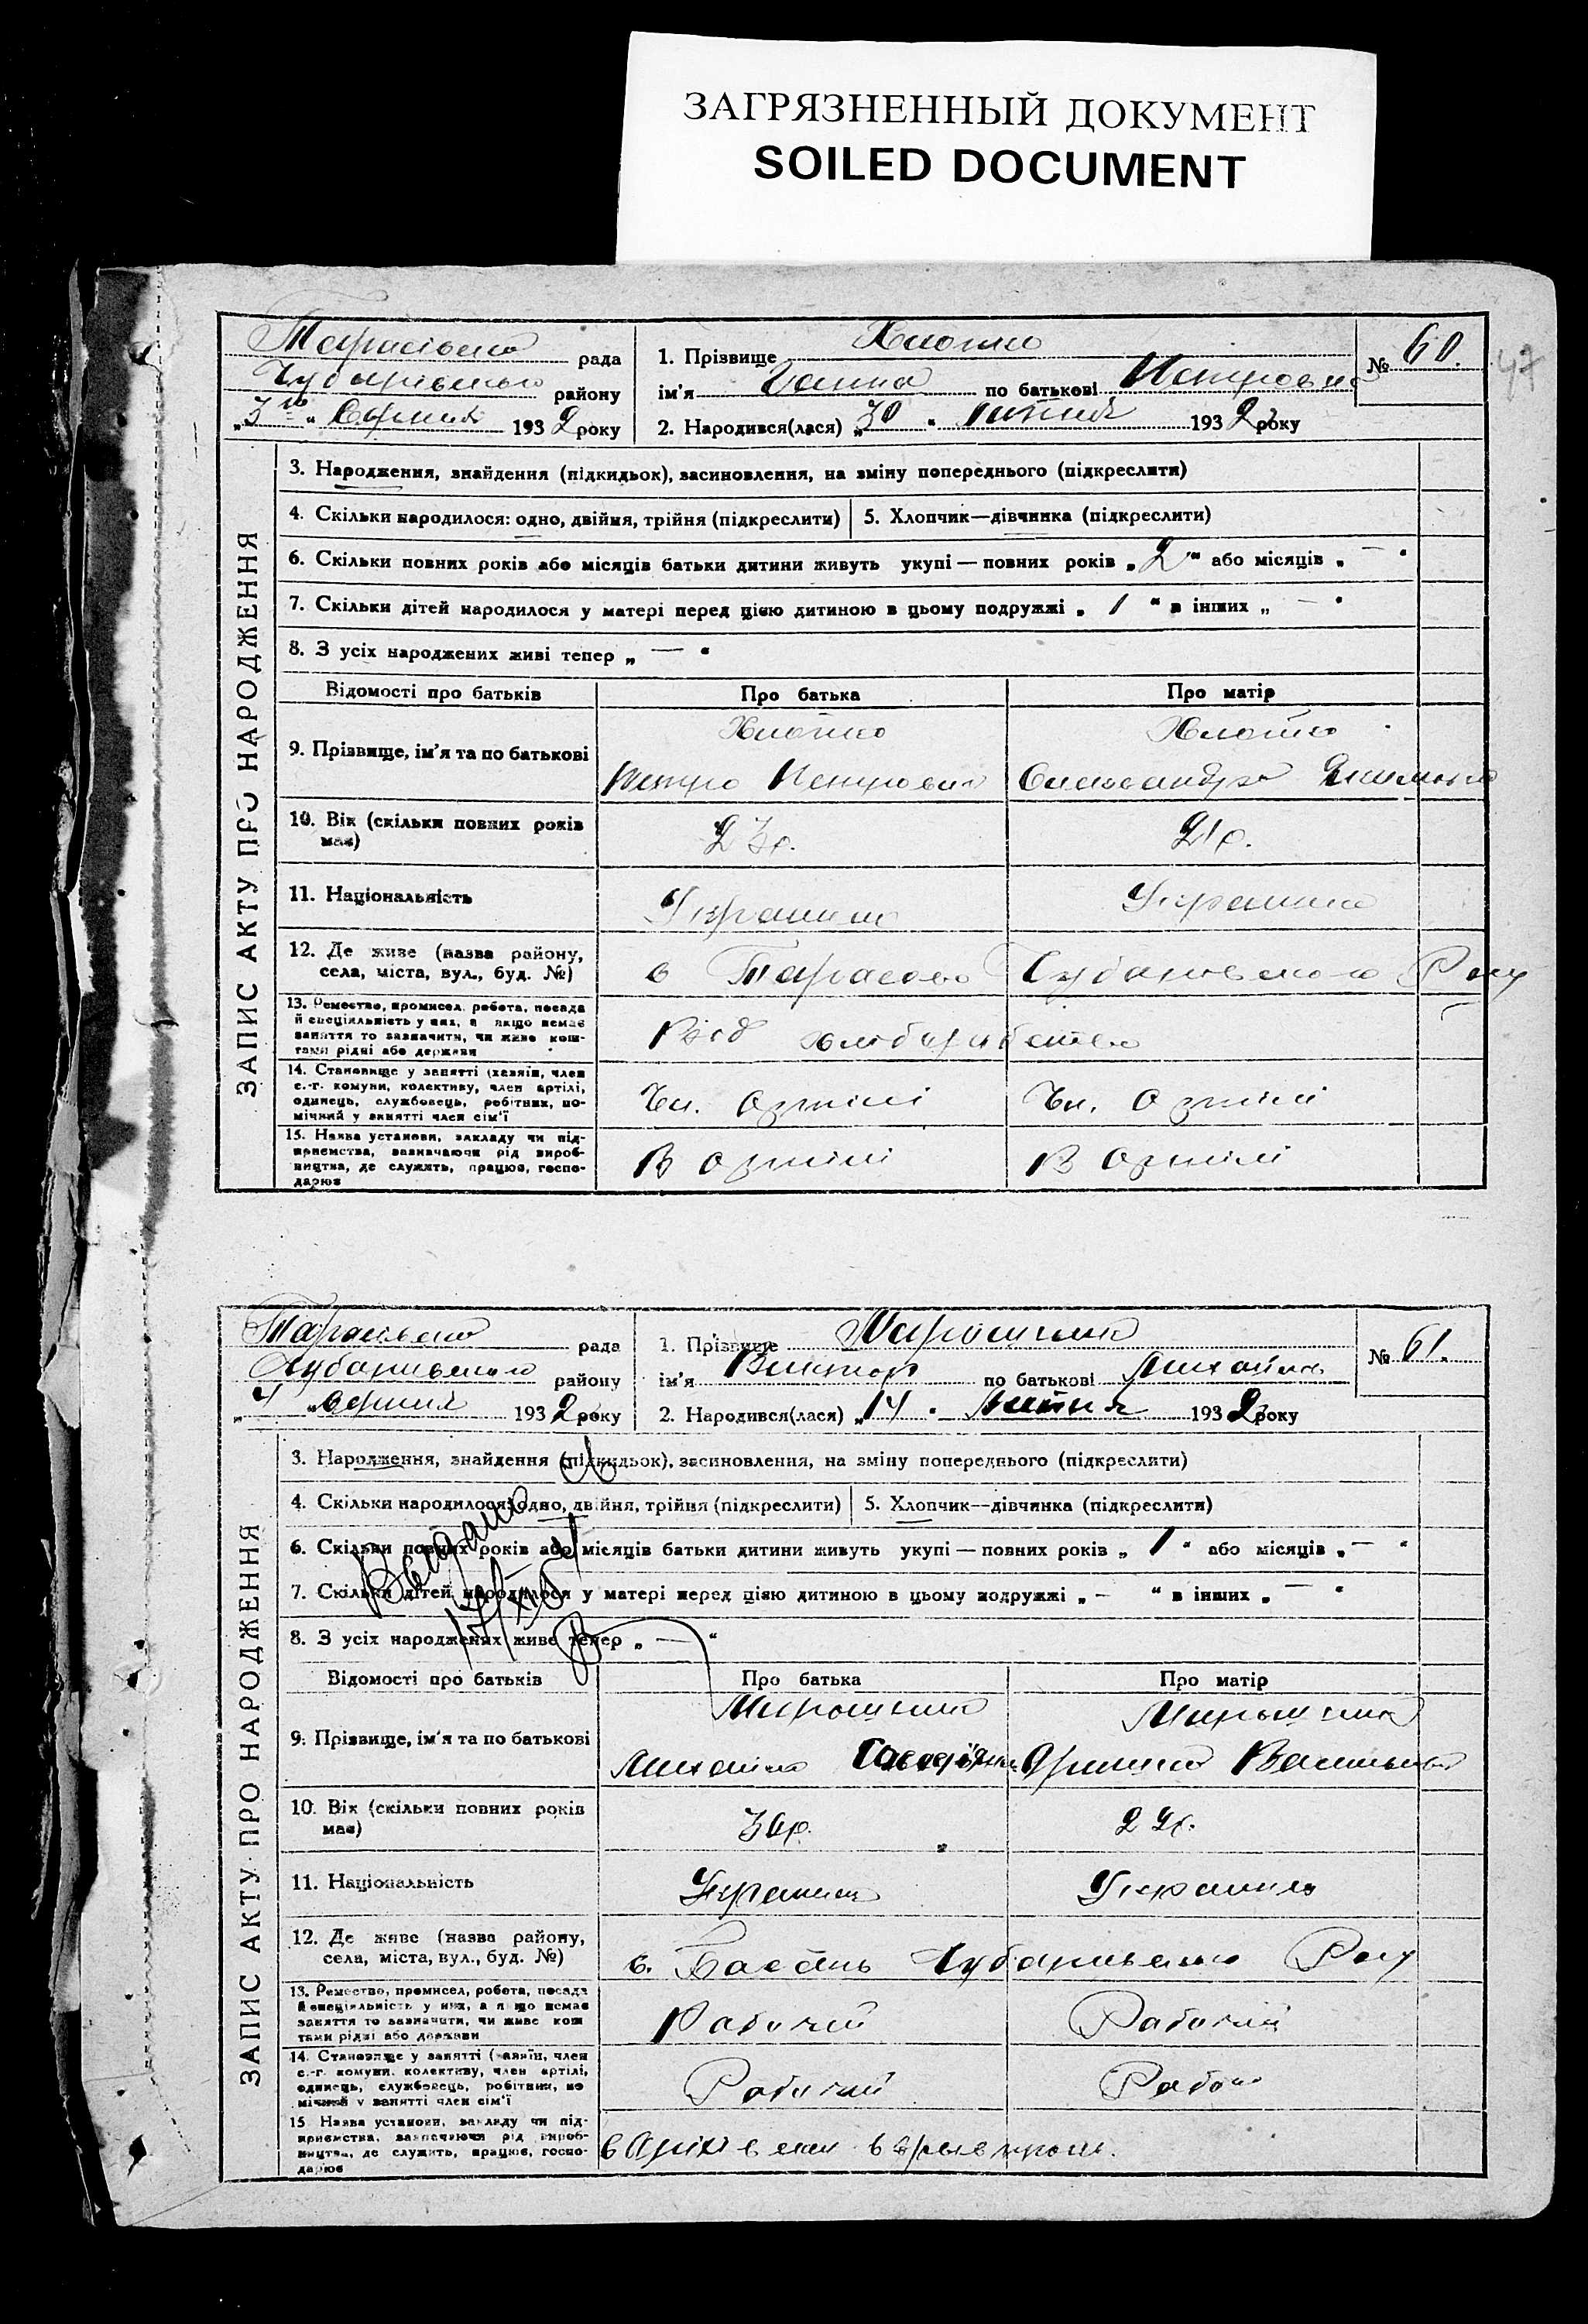 ЗАГРЯЗНЕННЫЙ ДОКУМЕНТ
SOILED DOCUMENT
рада
1. Прізвище
№ 60.
47
району
ім'я Ганна по батькові Петровна
„3го“ Серпня 1932 року
2. Народився(лася) „30“ липня 1932 року
ЗАПИС АКТУ ПРО НАРОДЖЕННЯ
3. Народження, знайдення (підкидьок), засиновлення, на зміну попереднього (підкреслити)
4. Скільки народилося: одно, двійня, трійня (підкреслити)
5. Хлопчик—дівчинка (підкреслити)
6. Скільки повних років або місяців батьки дитини живуть укупі — повних років „2“ або місяців „—“
7. Скільки дітей народилося у матері перед цією дитиною в цьому подружжі „1“ в інших „—“
8. З усіх народжених живі тепер „—“
Відомості про батьків
Про батька
Про матір
9. Прізвище, ім'я та по батькові
Петро Петрович
Олександра
10. Вік (скільки повних років
має)
23р.
21р.
11. Національність
12. Де живе (назва району,
села, міста, вул., буд. №)
с Тарасовка
13. Ремество, промисел, робота, посада
й спеціяльність у них, а якщо немає
заняття то зазначити, чи живе кош-
тами рідні або держави
14. Становище у занятті (хазяїн, член
с.-г. комуни, колективу, член артілі,
одинець, службовець, робітник, по-
мічний у занятті член сім'ї
Чл. Артілі
Чл. Артілі
15. Назва установи, закладу чи під-
приємства, зазначаючи рід вироб-
ництва, де служить, працює, госпо-
дарює
В Артілі
В Артілі
рада
1. Прізвище
№ 61.
району
ім'я Виктор по батькові Михайло
„4“ серпня 1932 року
2. Народився(лася) „14“ Липня 1932 року
ЗАПИС АКТУ ПРО НАРОДЖЕННЯ
3. Народження, знайдення (підкидьок), засиновлення, на зміну попереднього (підкреслити)
4. Скільки народилося: одно, двійня, трійня (підкреслити)
5. Хлопчик—дівчинка (підкреслити)
6. Скільки повних років або місяців батьки дитини живуть укупі — повних років „1“ або місяців „—“
7. Скільки дітей народилося у матері перед цією дитиною в цьому подружжі „—“ в інших „—“
8. З усіх народжених живе тепер „—“
Відомості про батьків
Про батька
Про матір
Мирошник
Мирошник
9. Прізвище, ім'я та по батькові
Михайло
10. Вік (скільки повних років
має)
11. Національність
12. Де живе (назва району,
села, міста, вул., буд. №)
13. Ремество, промисел, робота, посада
й спеціяльність у них, а якщо немає
заняття то зазначити, чи живе кош
тами рідні або держави
Рабочий
Рабочий
14. Становище у занятті (хазяїн, член
с.-г. комуни, колективу, член артілі,
одинець, службовець, робітник, по
мічний у занятті член сім'ї
Рабочий
15. Назва установи, закладу чи під-
приємства, зазначаючи рід вироб-
ництва, де служить, працює, госпо-
дарює